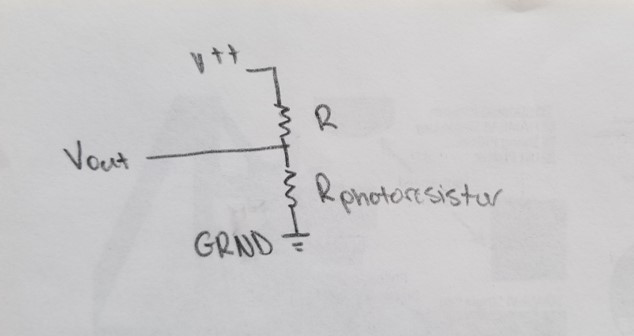 V++
R
Vout
Rphotoresistor
GRND